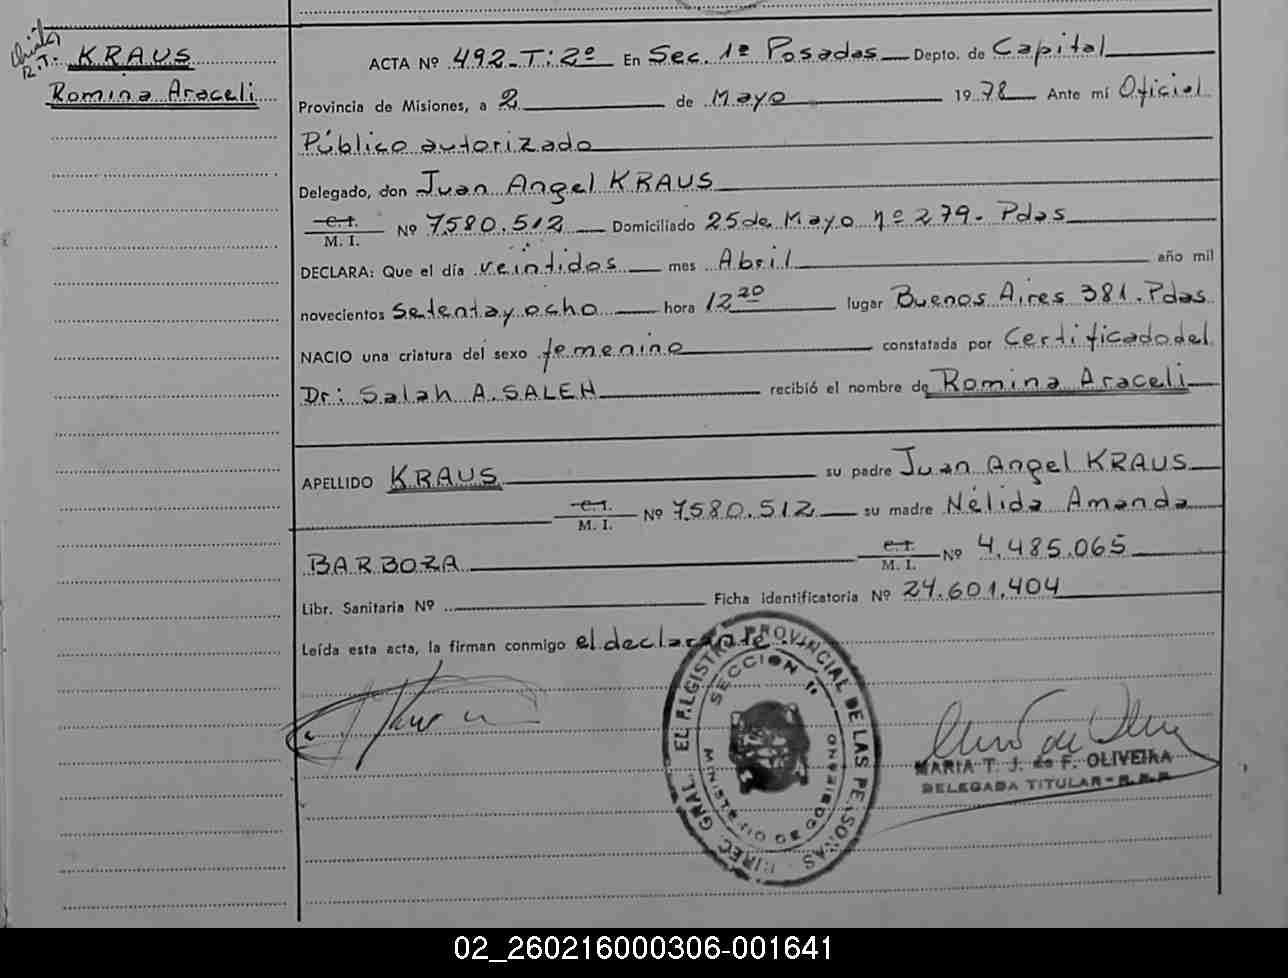 R.T.
KRAUS
Romina Araceli
ACTA Nº 492-T: 2º En Sec. 1ª Posadas Depto. de Capital
Provincia de Misiones, a 2 de Mayo 1978 Ante mí Oficial
Público autorizado
Delegado, don Juan Angel KRAUS
C.I.
M. I. Nº 7580.512 Domiciliado 25 de Mayo nº 279- Pdas
DECLARA: Que el día veintidos mes Abril año mil
novecientos setenta y ocho hora 12 20 lugar Buenos Aires 381. Pdas
NACIO una criatura del sexo femenino constatada por Certificado del
Dr: Salah A. SALEH recibió el nombre de Romina Araceli
APELLIDO KRAUS su padre Juan Angel KRAUS
C.I.
M. I. Nº 7580.512 su madre Nélida Amanda
BARBOZA C.I.
M. I. Nº 4.485.065
Libr. Sanitaria Nº Ficha identificatoria Nº 24.601.404
Leída esta acta, la firman conmigo el declarante
DIREC. GRAL. EL REGISTRO PROVINCIAL DE LAS PERSONAS
SECCION 1ª
MINISTERIO DE GOBIERNO
MARIA T. J. de F. OLIVEIRA
DELEGADA TITULAR -
02_260216000306-001641